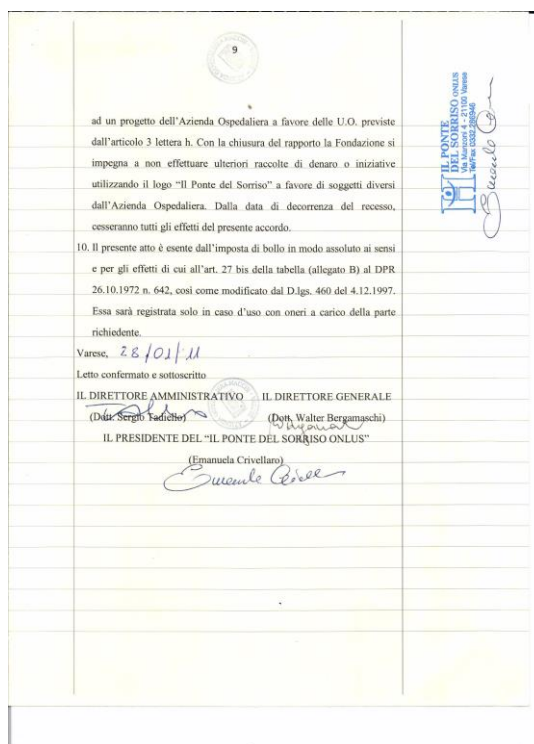 9
ad un progetto dell'Azienda Ospedaliera a favore delle U.O. previste
dall'articolo 3 lettera h. Con la chiusura del rapporto la Fondazione si
impegna a non effettuare ulteriori raccolte di denaro o iniziative
utilizzando il logo "Il Ponte del Sorriso" a favore di soggetti diversi
dall'Azienda Ospedaliera. Dalla data di decorrenza del recesso,
cesseranno tutti gli effetti del presente accordo.
10. Il presente atto è esente dall'imposta di bollo in modo assoluto ai sensi
e per gli effetti di cui all'art. 27 bis della tabella (allegato B) al DPR
26.10.1972 n. 642, così come modificato dal D.lgs. 460 del 4.12.1997.
Essa sarà registrata solo in caso d'uso con oneri a carico della parte
richiedente.
Varese, 28/01/11
Letto confermato e sottoscritto
IL DIRETTORE AMMINISTRATIVO IL DIRETTORE GENERALE
(Dott. Sergio Tadiello) (Dott. Walter Bergamaschi)
IL PRESIDENTE DEL "IL PONTE DEL SORRISO ONLUS"
(Emanuela Crivellaro)
IL PONTE
DEL SORRISO ONLUS
Via Manzoni 4 - 21100 Varese
Tel/Fax 0332.286946